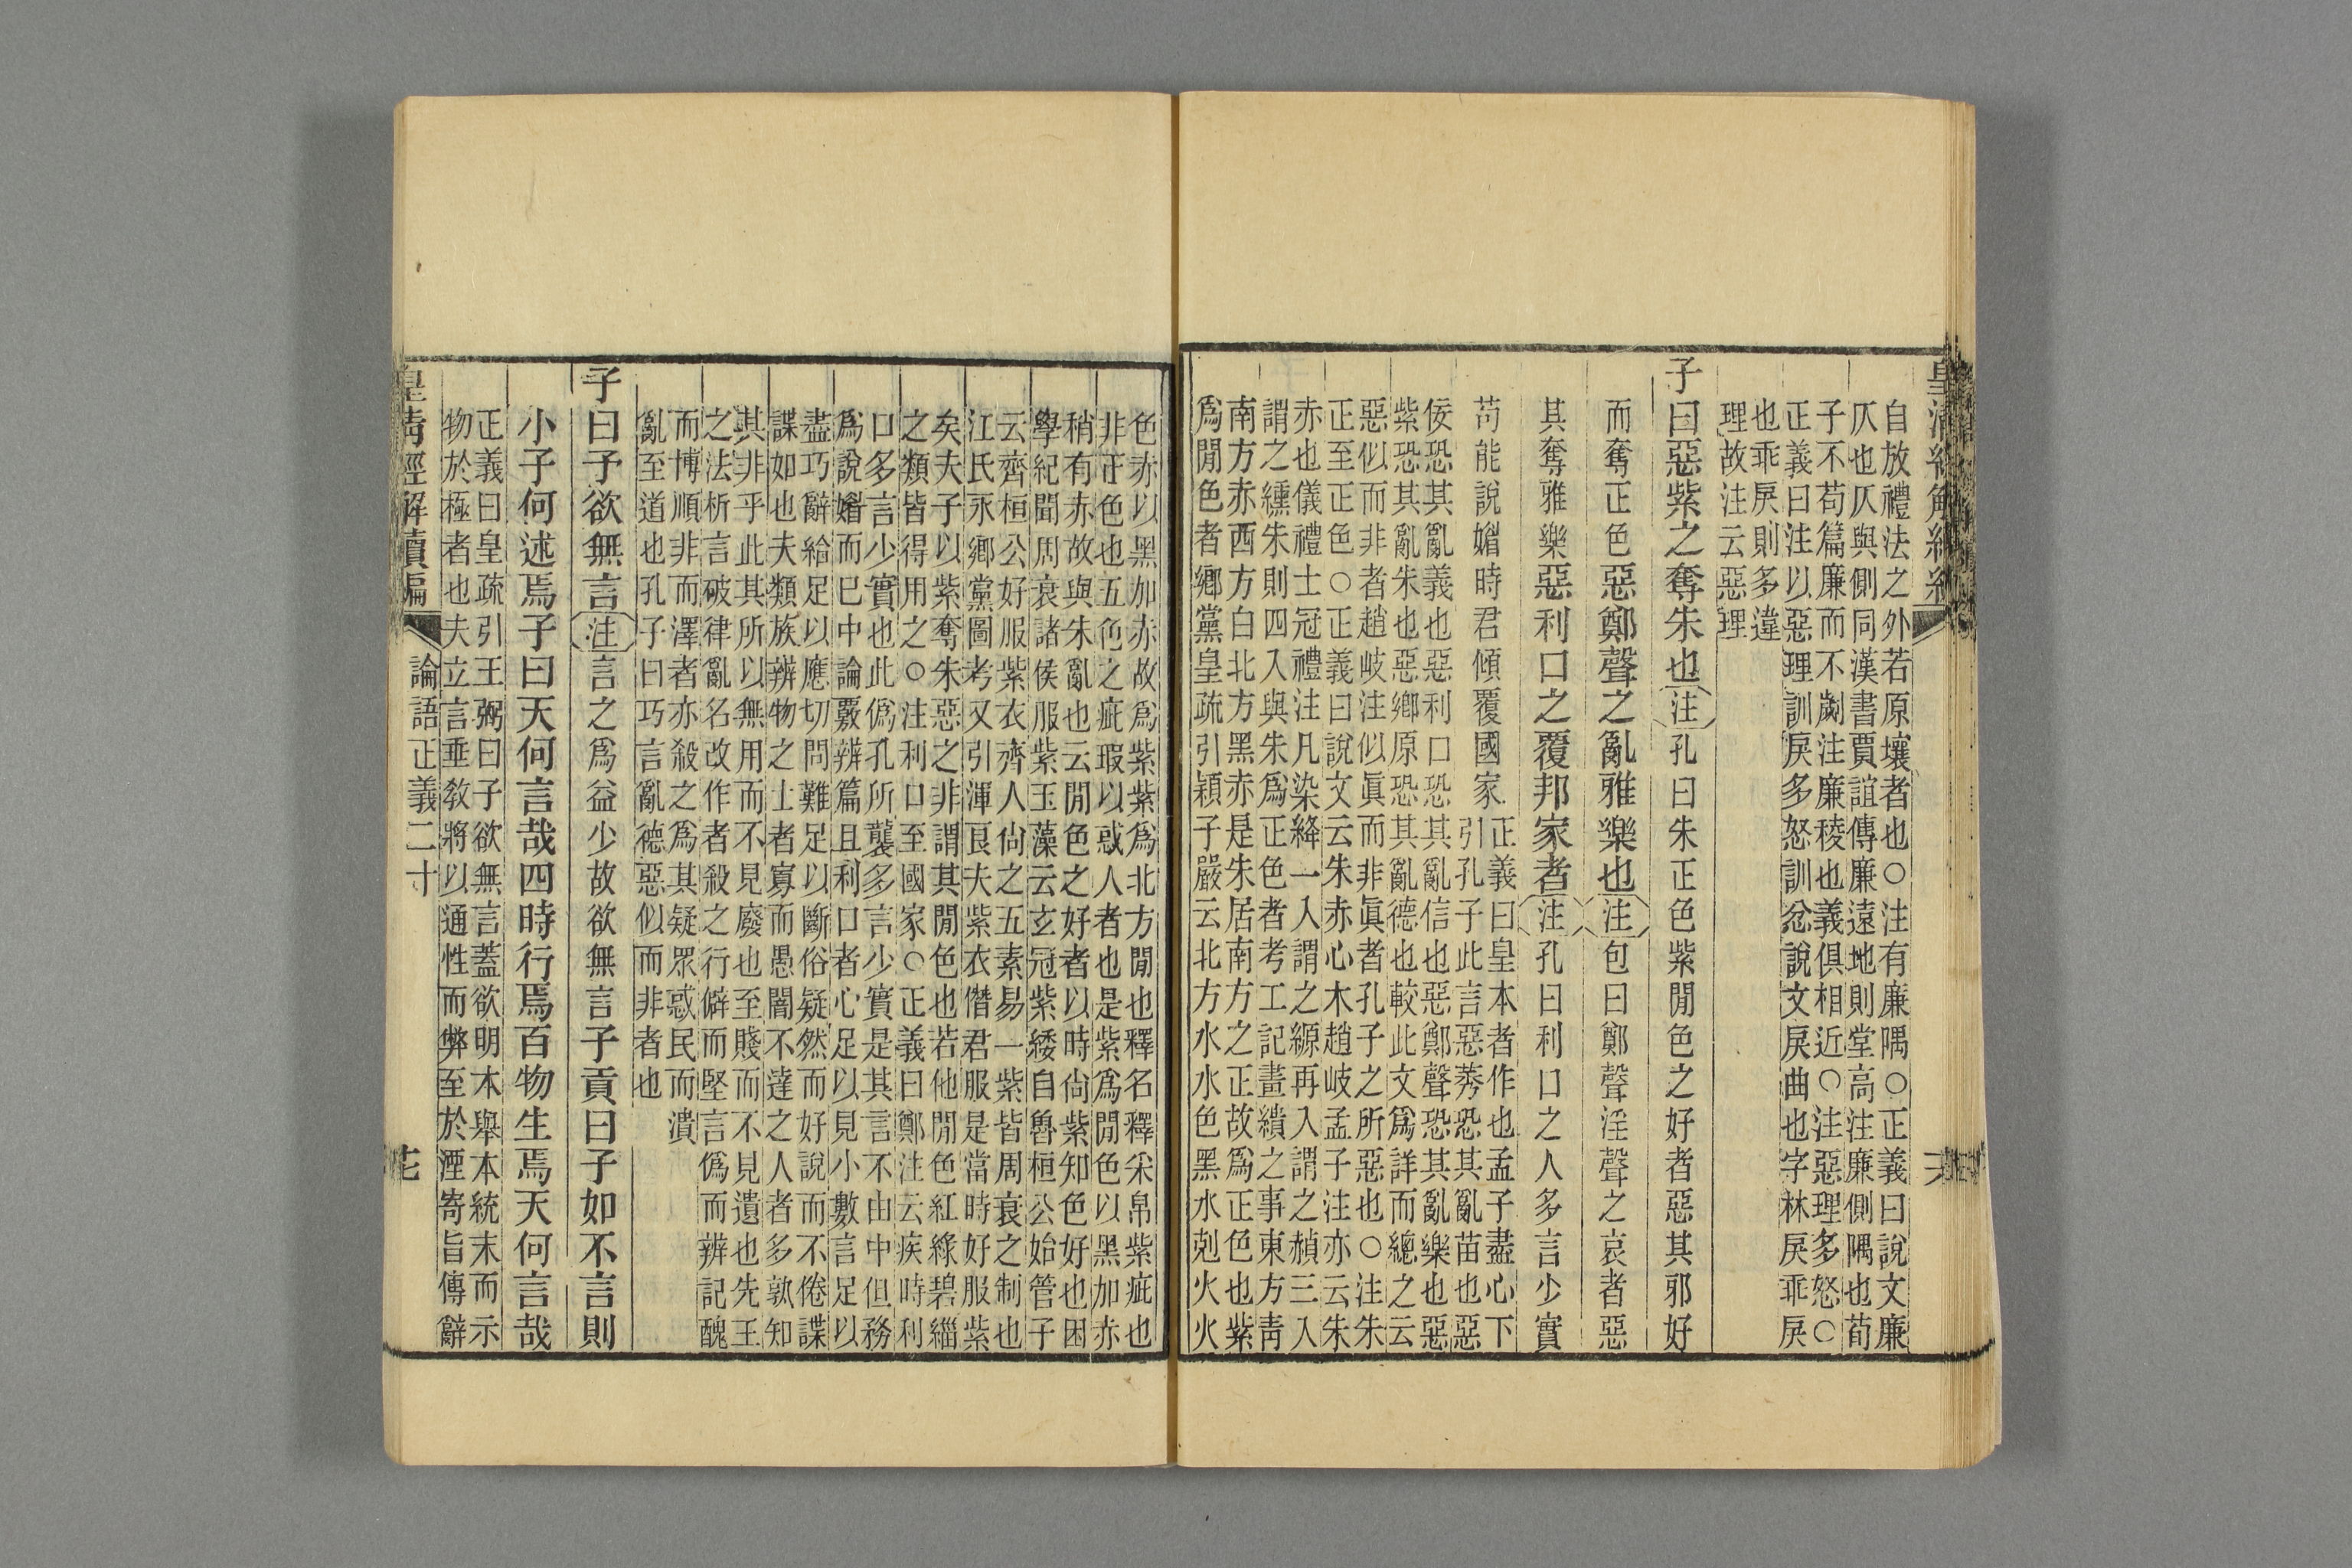 自放禮法之外若原壤者也○注有廉隅○正義曰說文廉
仄也仄與側同漢書賈誼傳廉遠地則堂高注廉側隅也荀
子不苟篇廉而不劌注廉稜也義俱相近○注惡理多怒○
正義曰注以惡理訓戾多怒訓忿說文戾曲也字林戾乖戾
也乖戾則多違
理故注云惡理
子曰惡紫之奪朱也注孔曰朱正色紫閒色之好者惡其邪好
而奪正色惡鄭聲之亂雅樂也注包曰鄭聲淫聲之哀者惡
其奪雅樂惡利口之覆邦家者注孔曰利口之人多言少實
苟能說媚時君傾覆國家
正義曰皇本者作也孟子盡心下
引孔子此言惡莠恐其亂苗也惡
佞恐其亂義也惡利口恐其亂信也惡鄭聲恐其亂樂也惡
紫恐其亂朱也惡鄉原恐其亂德也較此文爲詳而總之云
惡似而非者趙岐注似眞而非眞者孔子之所惡也○注朱
正至正色○正義曰說文云朱赤心木趙岐孟子注亦云朱
赤也儀禮士冠禮注凡染絳一入謂之縓再入謂之赬三入
謂之纁朱則四入與朱爲正色者考工記畫繢之事東方靑
南方赤西方白北方黑赤是朱居南方之正故爲正色也紫
爲閒色者鄉黨皇疏引穎子嚴云北方水水色黑水剋火火
色赤以黑加赤故爲紫紫爲北方閒也釋名釋采帛紫疵也
非正色也五色之疵瑕以惑人者也是紫爲閒色以黑加赤
稍有赤故與朱亂也云閒色之好者以時尙紫知色好也困
學紀聞周衰諸侯服紫玉藻云玄冠紫緌自魯桓公始管子
云齊桓公好服紫衣齊人尙之五素易一紫皆周衰之制也
江氏永鄉黨圖考又引渾良夫紫衣僭君服是當時好服紫
矣夫子以紫奪朱惡之非謂其閒色也若他閒色紅綠碧緇
之類皆得用之○注利口至國家○正義曰鄭注云疾時利
口多言少實也此僞孔所襲多言少實是其言不由中但務
爲說媚而已中論覈辨篇且利口者心足以見小數言足以
盡巧辭給足以應切問難足以斷俗疑然而好說而不倦諜
諜如也夫類族辨物之士者寡而愚闇不達之人者多孰知
其非乎此其所以無用而不見廢也至賤而不見遺也先王
之法析言破律亂名改作者殺之行僻而堅言僞而辨記醜
而博順非而澤者亦殺之爲其疑眾惑民而潰
亂至道也孔子曰巧言亂德惡似而非者也
子曰予欲無言注言之爲益少故欲無言子貢曰子如不言則
小子何述焉子曰天何言哉四時行焉百物生焉天何言哉
正義曰皇疏引王弼曰子欲無言蓋欲明本舉本統末而示
物於極者也夫立言垂教將以通性而弊至於湮寄旨傳辭
皇淸經解續編
論語正義二十